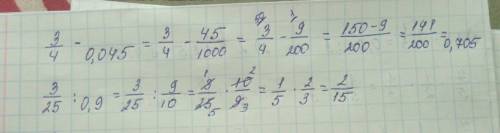 3/4 - 0,045 = 3/4 - 45/1000 = 3/4 - 9/200 = 150-9/200 = 141/200 = 0,705
3/25 : 0,9 = 3/25 : 9/10 = 3/25 · 10/9 = 1/5 · 2/3 = 2/15